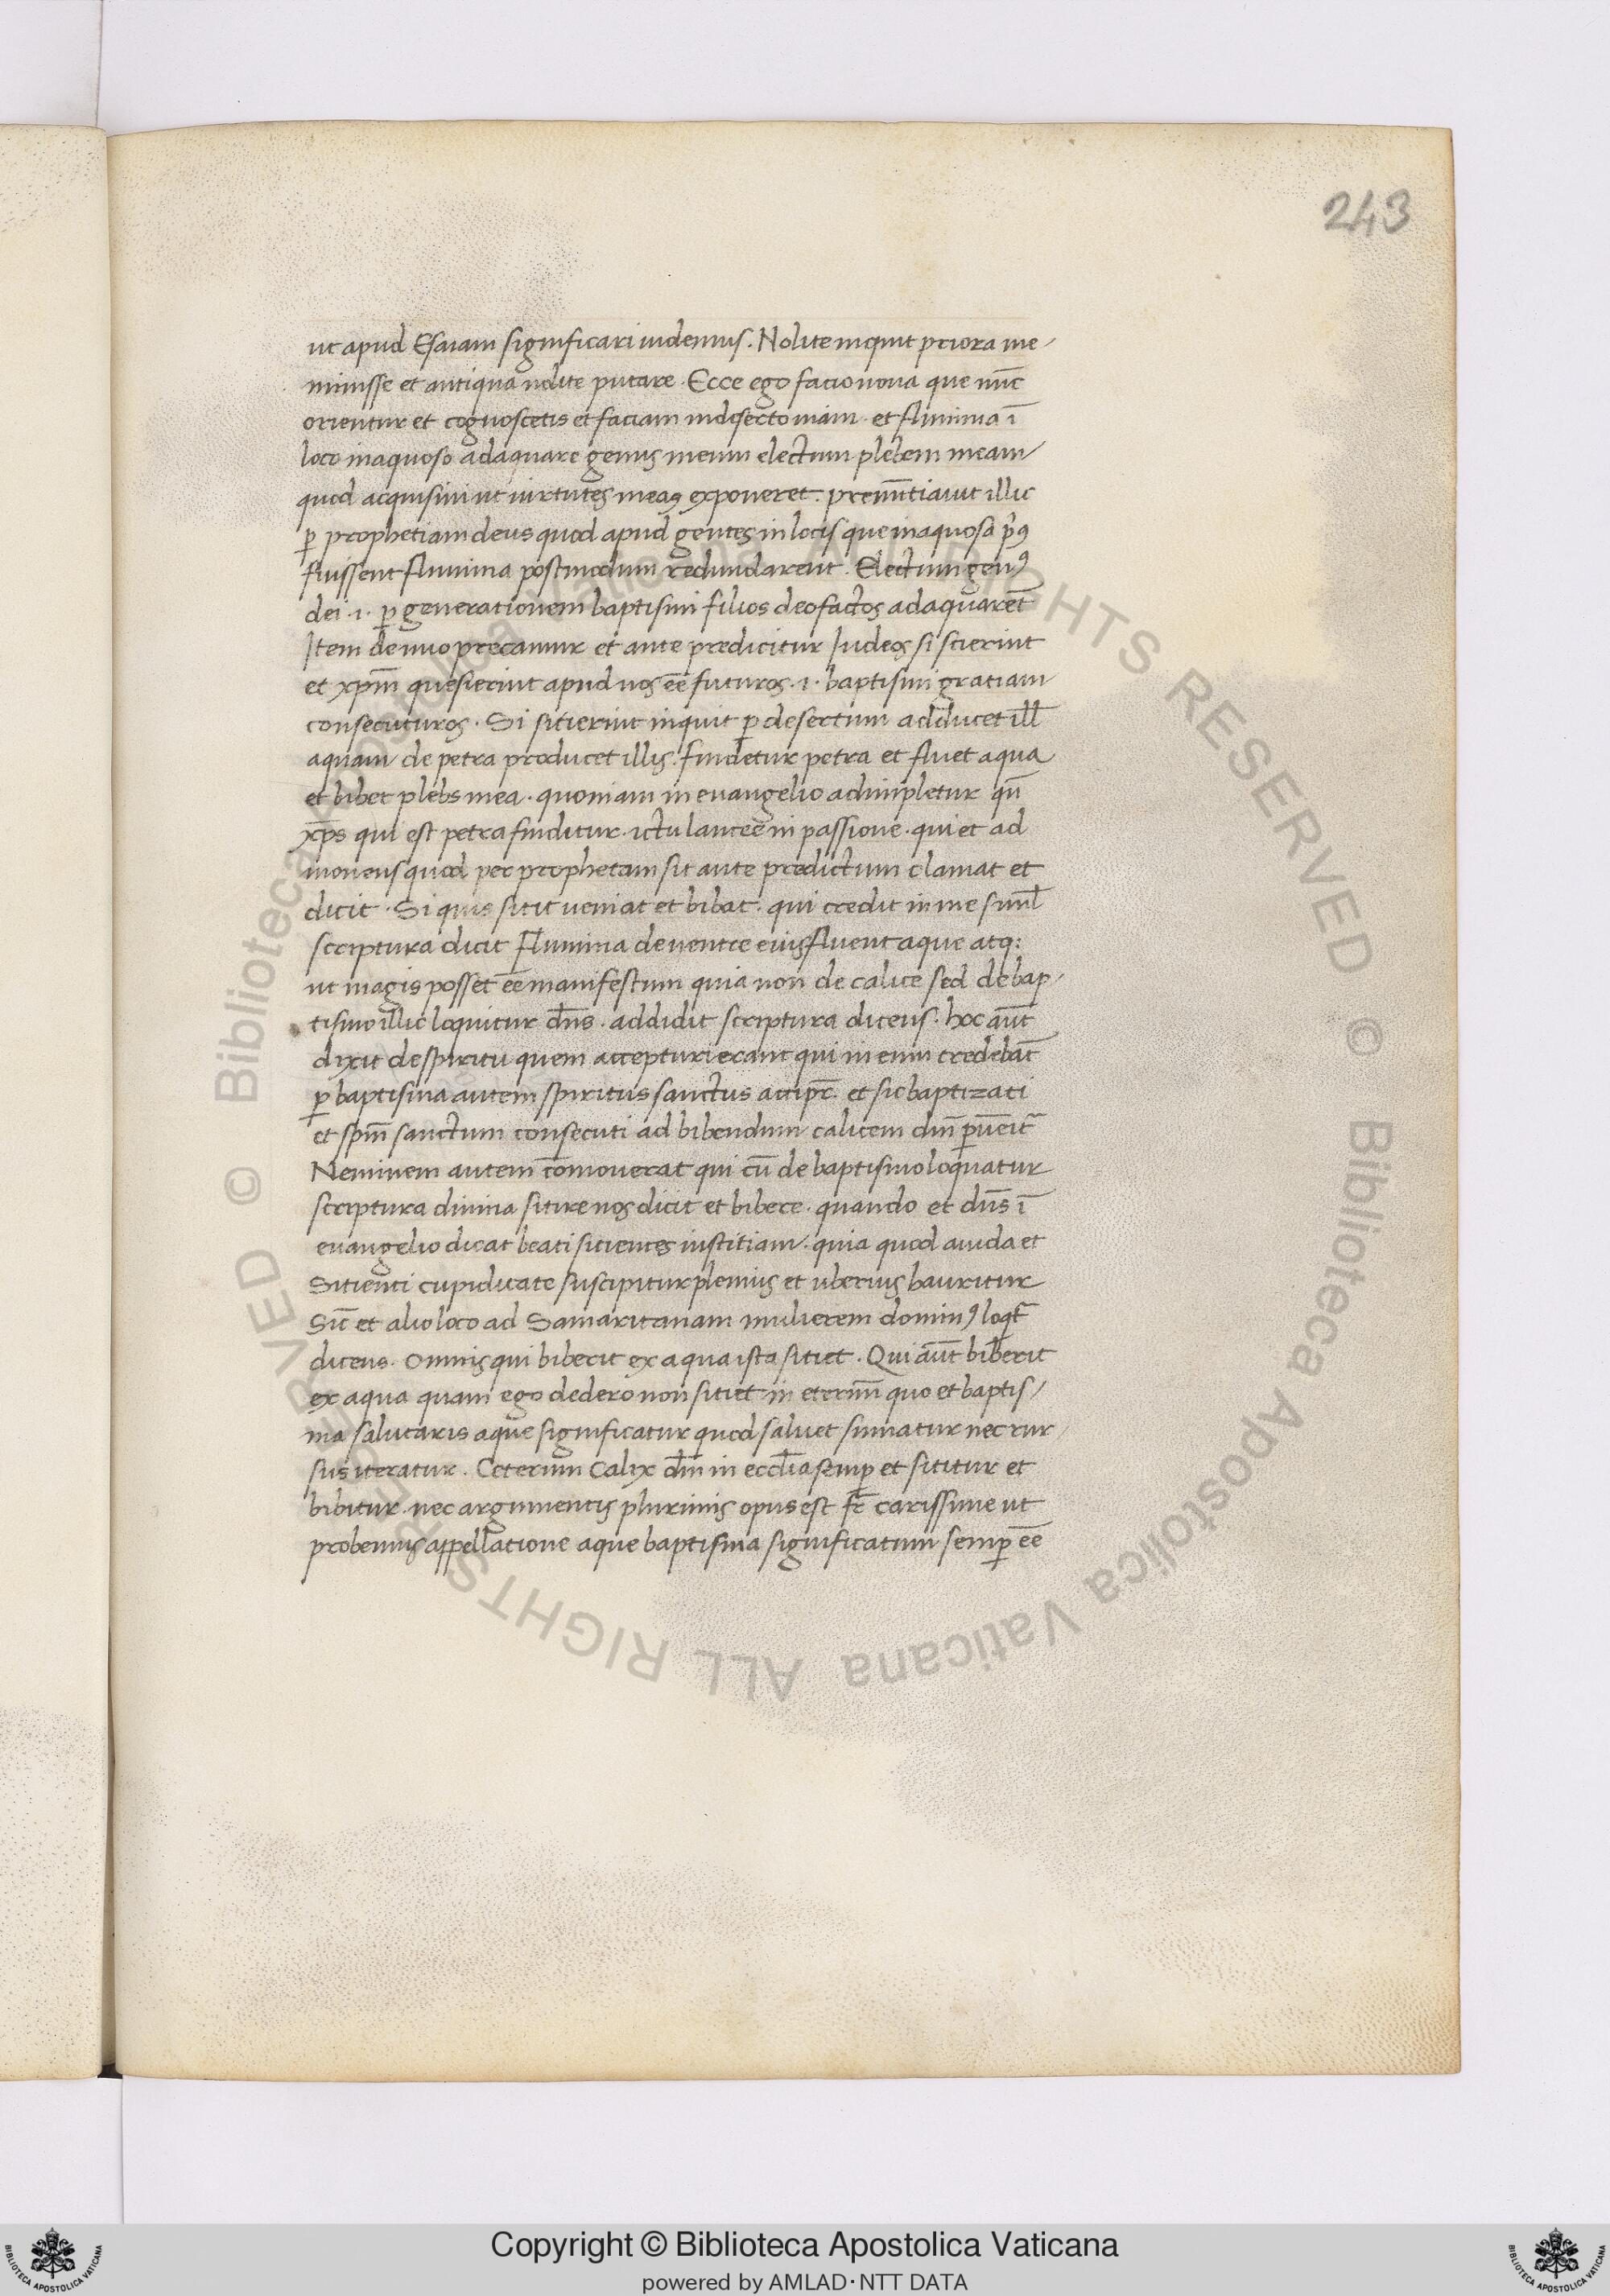 243
ut apud Esaiam significari uidemus. Nolite inquit priora me-
minisse et antiqua nolite putare. Ecce ego facio noua que nūc
orientur et cognoscetis et faciam in diserto uiam. et flumina ī
loco inaquoso adaquare genus meum electum plebem meam
quod acquisiui ut uirtutes meas exponeret. prenūtiauit illic
ꝑ prophetiam deus quod apud gentes in locis que inaquosa priꝯ
fuissent flumina postmodum redundarent. Electum genꝯ
dei .i. ꝑ generationem baptismi filios deo factos adaquarēt
Item denuo precanitur et ante predicitur Iudeos si scierint
et xp̄m quesierint apud nos ēe futuros .i. baptismi gratiam
consecuturos. Si sitierint inquit ꝑ desertum adducet ill̄
aquam de petra producet illis. findetur petra et fluet aqua
et bibet plebs mea. quoniam in euangelio adimpletur qn̄
xp̄s qui est petra finditur. ictu lancee in passione. qui et ad
monens quod per prophetam sit ante predictum clamat et
dicit. Si quis sitit ueniat et bibat. qui credit in me sicut
scriptura dicit Flumina de uentre eius fluent aque atq:
ut magis posset ēe manifestum quia non de calice sed de bap-
tismo illic loquitur dn̄s. addidit scriptura dicens. hoc aūt
dixit de spiritu quem accepturi erant qui in eum credebāt
ꝑ baptisma autem spiritus sanctus accipīt. et sic baptizati
et sp̄m sanctum consecuti ad bibendum calicem dn̄i ꝑueīt
Neminem autem cōmouerat qui cū de baptismo loquatur
scriptura diuina sitire nos dicit et bibere. quando et dn̄s ī
euangelio dicat beati sitientes iustitiam. quia quod auida et
Sitienti cupiditate suscipitur plenius et uberius hauritur
Sic̄ et alio loco ad Samaritanam mulierem dominꝯ loqt̄
dicens. Omnis qui biberit ex aqua ista sitiet. Qui aūt biberit
ex aqua quam ego dedero non sitiet in eternū quo et baptis-
ma salutaris aque significatur quod saluet sumatur nec rur-
sus iteratur. Ceterum Calix dn̄i in eccl̄ia semꝑ et sititur et
bibitur. nec argumentis plurimis opus est fr̄ carissime ut
probemus appellatione aque baptisma significatum semꝑ ēe
© Biblioteca Apostolica Vaticana ALL RIGHTS RESERVED © Biblioteca Apostolica Vaticana ALL RIGHTS RESERVED
Copyright © Biblioteca Apostolica Vaticana
powered by AMLAD·NTT DATA